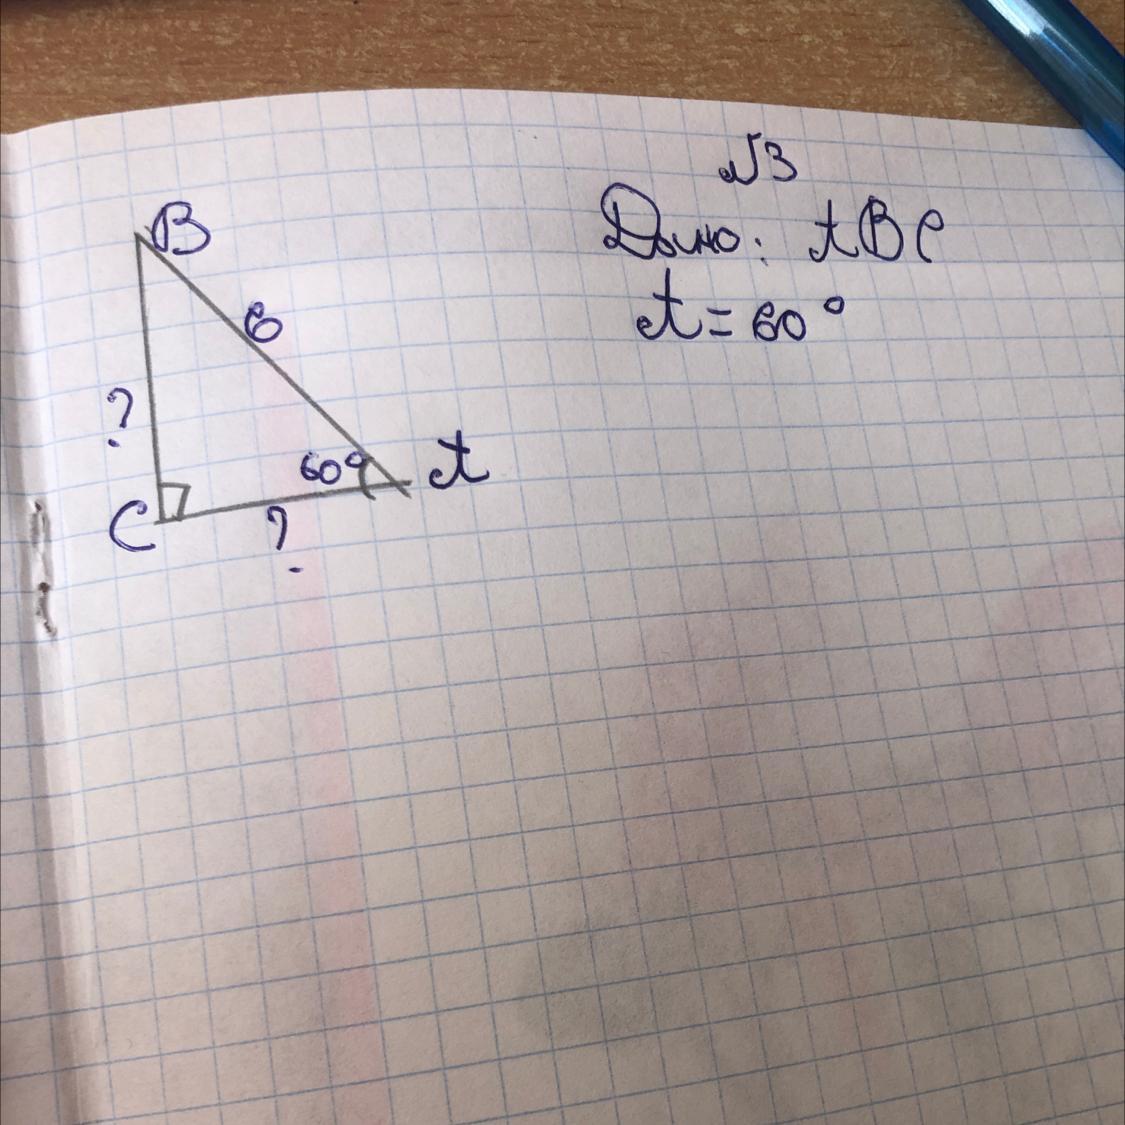 √3
Дано: ABC
A = 60°
B
6
?
60°
A
C
?